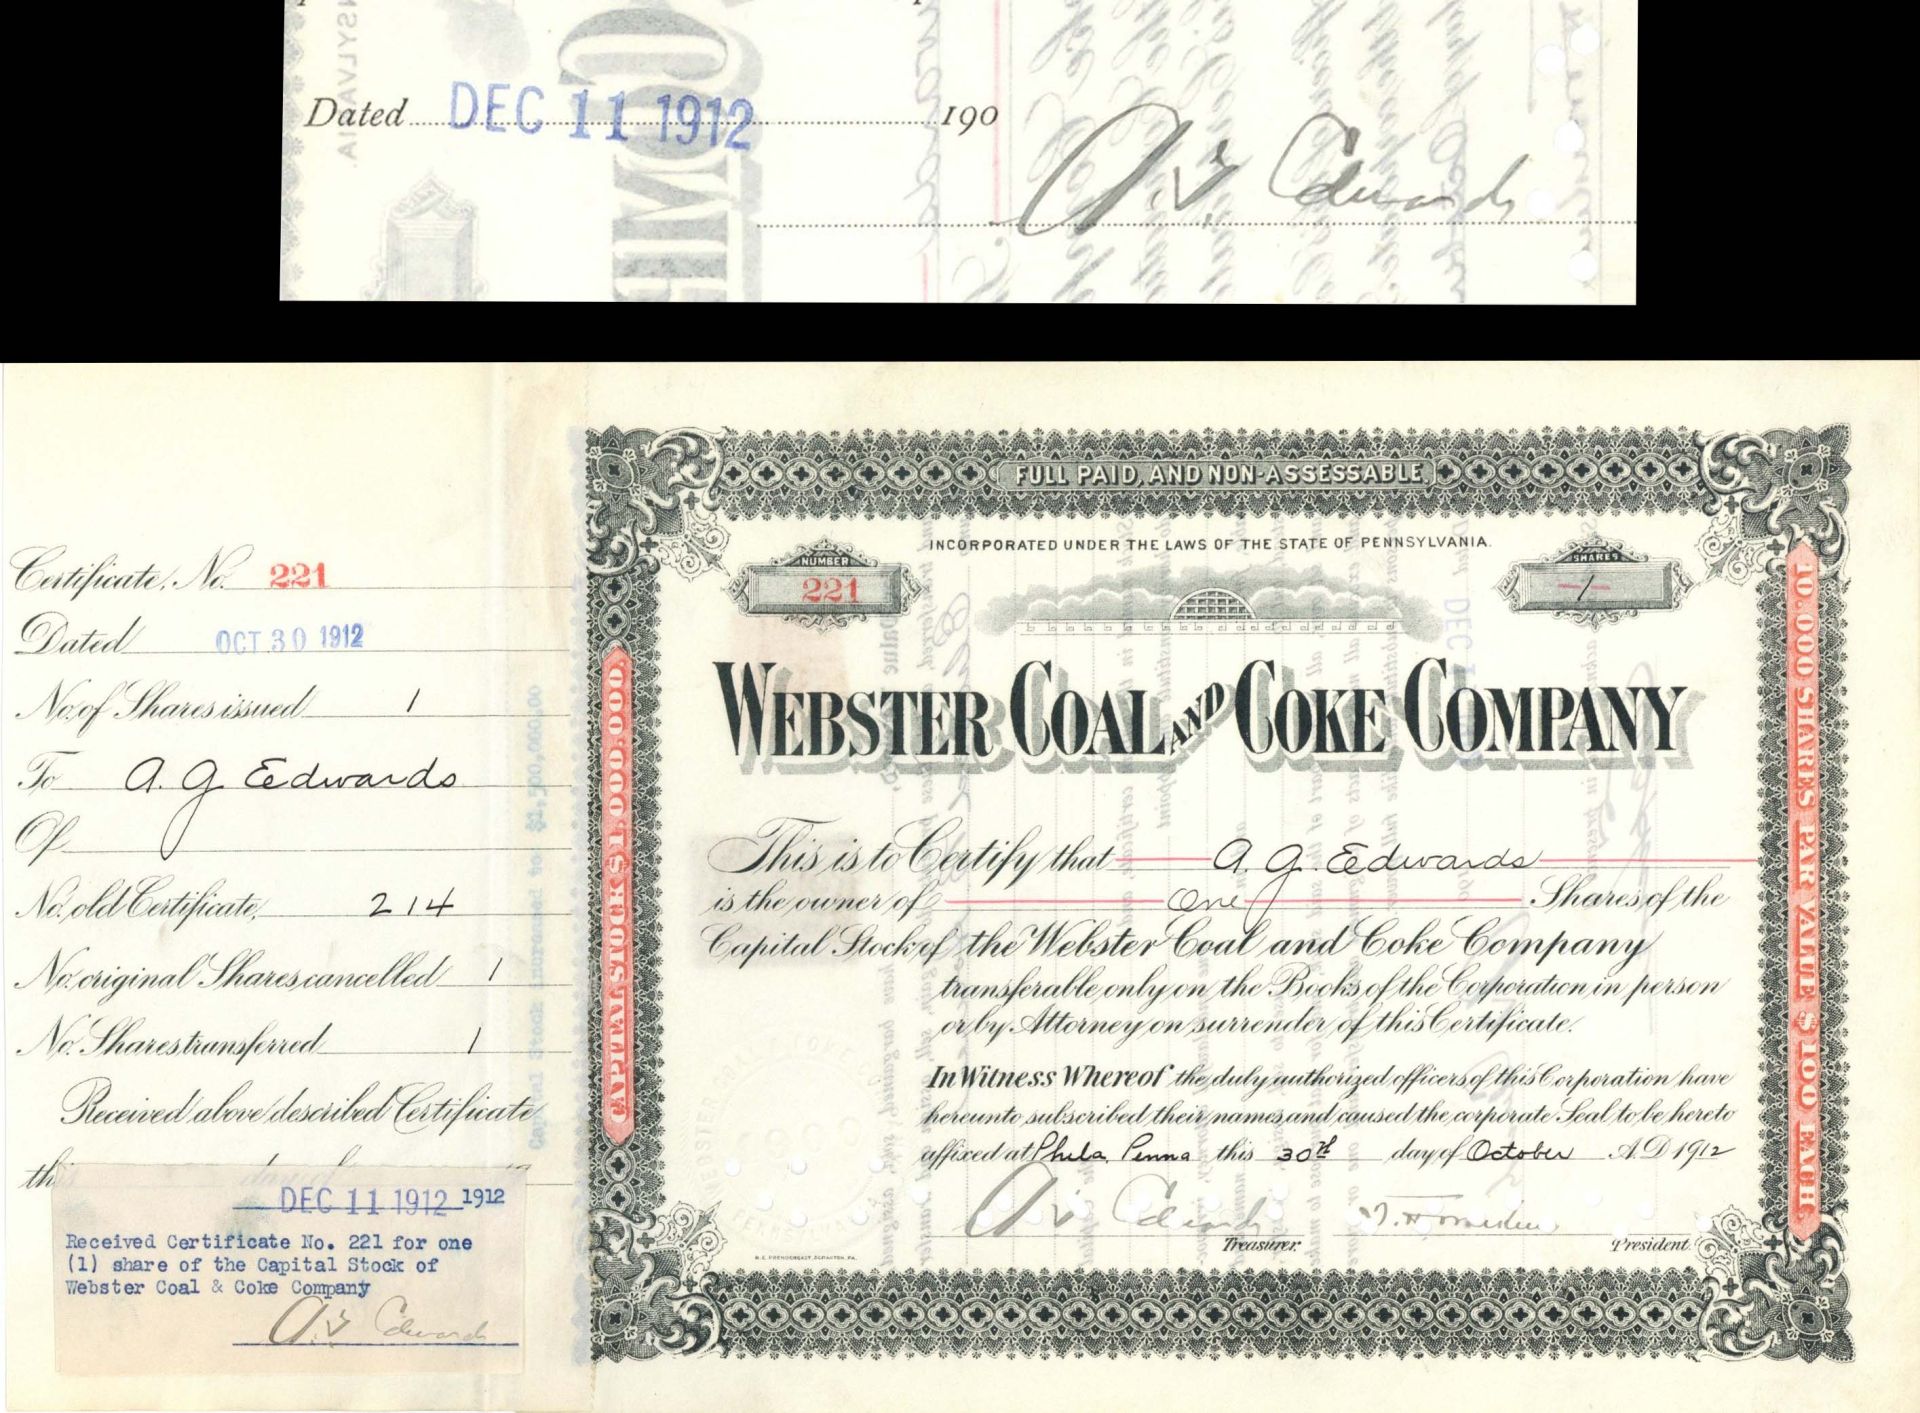 Dated DEC 11 1912 190
A. G. Edwards
FULL PAID, AND NON-ASSESSABLE.
INCORPORATED UNDER THE LAWS OF THE STATE OF PENNSYLVANIA.
NUMBER
221
SHARES
1
WEBSTER COAL AND COKE COMPANY
CAPITAL STOCK $1,000,000.
10,000 SHARES PAR VALUE $100 EACH.
This is to Certify that A. G. Edwards
is the owner of One Shares of the
Capital Stock of the Webster Coal and Coke Company
transferable only on the Books of the Corporation in person
or by Attorney on surrender of this Certificate.
In Witness Whereof the duly authorized officers of this Corporation have
hereunto subscribed their names and caused the corporate Seal to be hereto
affixed at Phila. Penna this 30th day of October A.D. 1912
A. G. Edwards
Treasurer.
President.
Certificate, No. 221
Dated OCT 30 1912
No. of Shares issued 1
To A. G. Edwards
Of
No. old Certificate, 214
No. original Shares cancelled 1
No. Shares transferred 1
Received above described Certificate
this
DEC 11 1912 1912
Received Certificate No. 221 for one
(1) share of the Capital Stock of
Webster Coal & Coke Company
A. G. Edwards